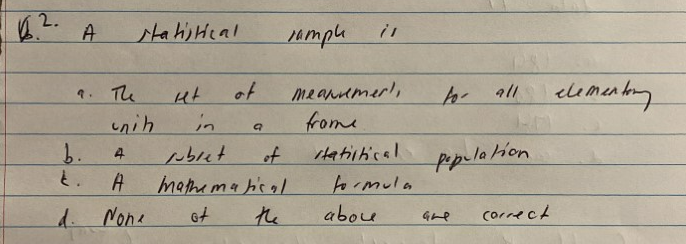 2. A statistical sample is
a. The set of measurements for all elementary
units in a frame
b. A subset of statistical population
c. A mathematical formula
d. None of the above are correct